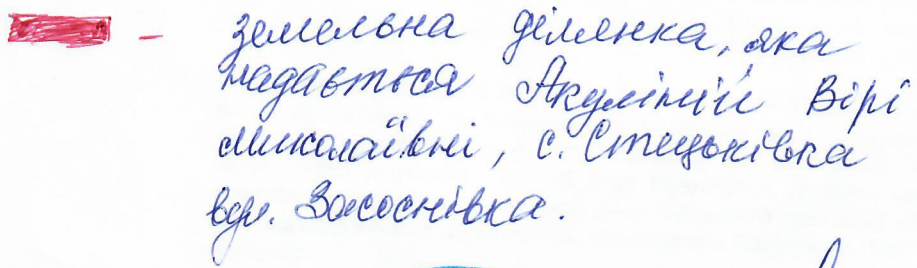 земельна ділянка, яка
надається Акулініній Вірі
Миколаївні, с. Стецьківка
вул. Засоснівка.